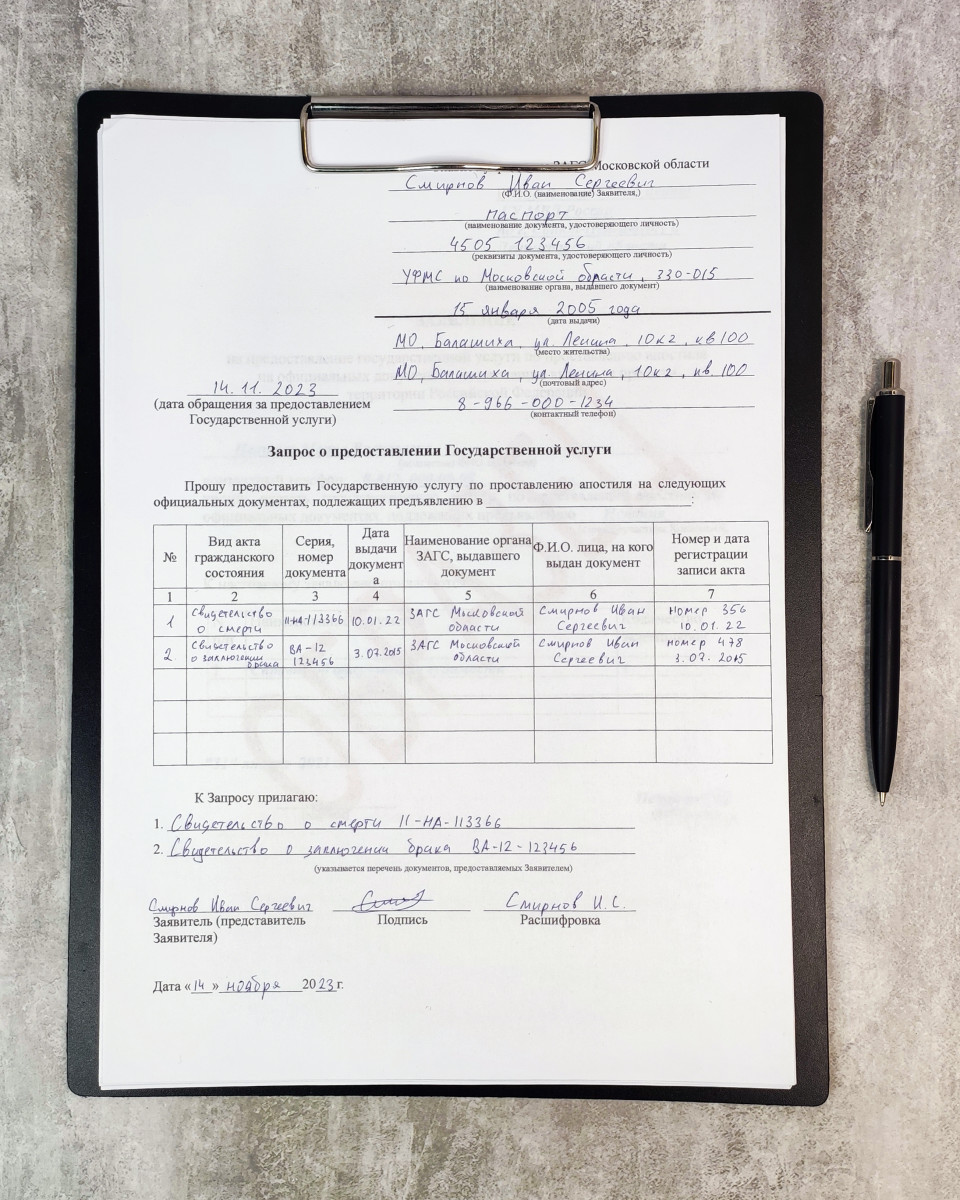 ЗАГС Московской области
Смирнов Иван Сергеевич
(Ф.И.О. (наименование) Заявителя,)
паспорт
(наименование документа, удостоверяющего личность)
4505 123456
(реквизиты документа, удостоверяющего личность)
УФМС по Московской области, 330-015
(наименование органа, выдавшего документ)
15 января 2005 года
(дата выдачи)
МО, Балашиха, ул. Ленина, 10к2, кв 100
(место жительства)
МО, Балашиха, ул. Ленина, 10к2, кв. 100
(почтовый адрес)
8-966-000-1234
(контактный телефон)
14.11.2023
(дата обращения за предоставлением
Государственной услуги)
Запрос о предоставлении Государственной услуги
Прошу предоставить Государственную услугу по проставлению апостиля на следующих
официальных документах, подлежащих предъявлению в ____________________________:
№ Вид акта гражданского состояния Серия, номер документа Дата выдачи документа Наименование органа ЗАГС, выдавшего документ Ф.И.О. лица, на кого выдан документ Номер и дата регистрации записи акта
1 2 3 4 5 6 7
1 Свидетельство о смерти II-НА-113366 10.01.22 ЗАГС Московской области Смирнов Иван Сергеевич номер 356 10.01.22
2 Свидетельство о заключении брака ВА-12 123456 3.07.2015 ЗАГС Московской области Смирнов Иван Сергеевич номер 478 3.07.2015
К Запросу прилагаю:
1. Свидетельство о смерти II-НА-113366
2. Свидетельство о заключении брака ВА-12-123456
(указывается перечень документов, предоставляемых Заявителем)
Смирнов Иван Сергеевич Смирнов И.С.
Заявитель (представитель Подпись Расшифровка
Заявителя)
Дата «14» ноября 2023г.